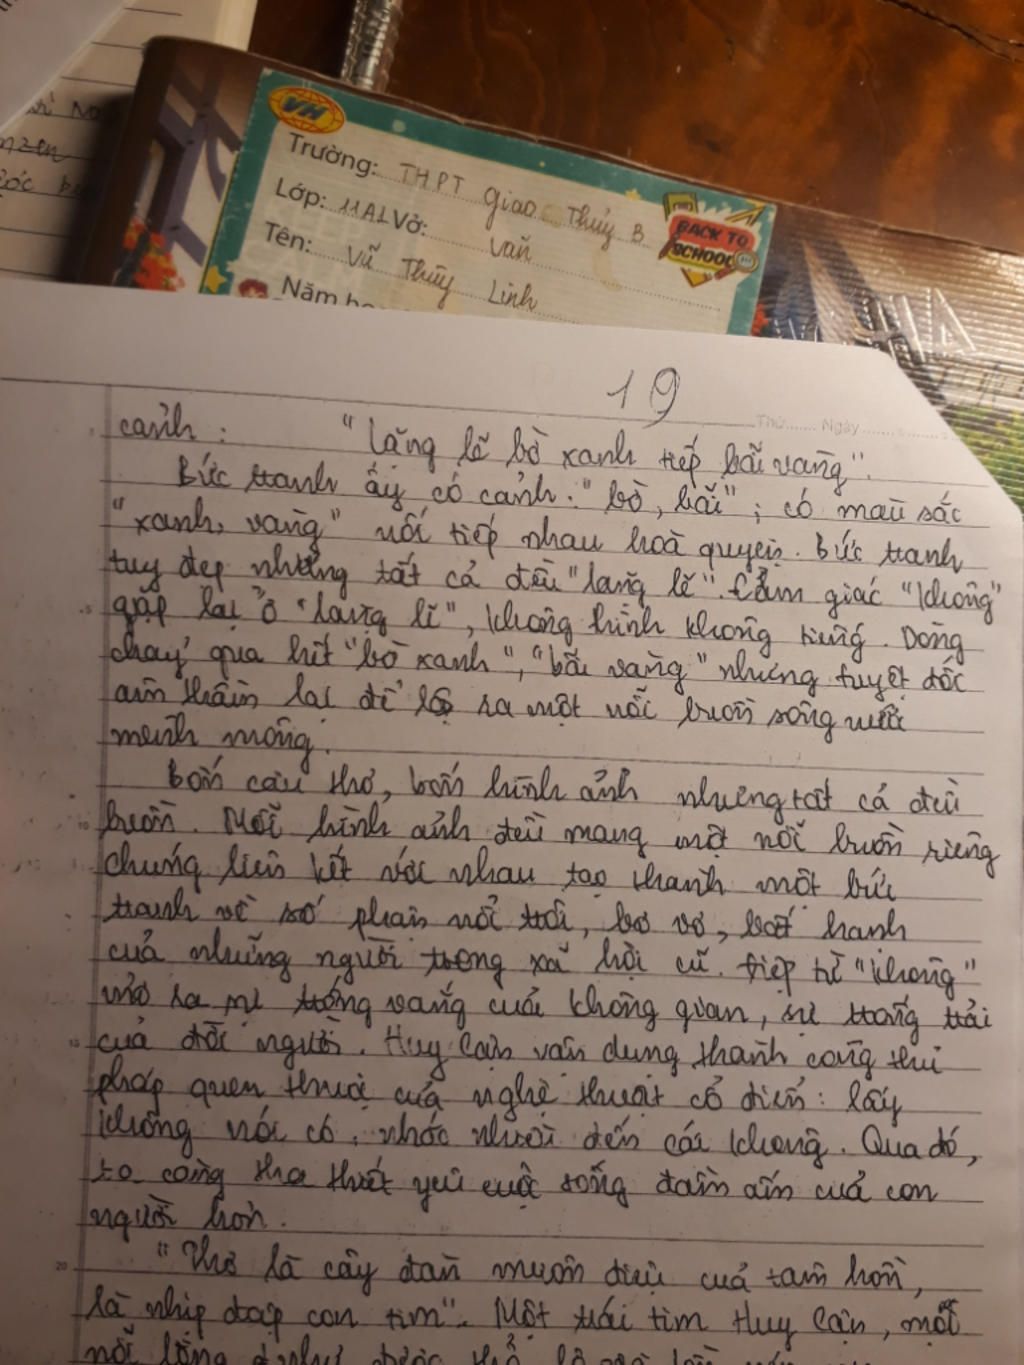 VH
Trường: THPT Giao Thủy B
Lớp: 11A1 Vở: Văn
Tên: Vũ Thùy Linh
BACK TO
SCHOOL
19
Thứ...... Ngày
cảnh: "Lặng lẽ bờ xanh tiếp bãi vàng".
Bức tranh ấy có cảnh: "bờ, bãi"; có màu sắc
"xanh, vàng" nối tiếp nhau hoà quyện. Bức tranh
tuy đẹp nhưng tất cả đều "lặng lẽ". Cảm giác "không"
5
gặp lại ở "lặng lẽ", không hình không tiếng. Dòng
chảy qua hết "bờ xanh", "bãi vàng" nhưng tuyệt đốc
âm thầm lại để lộ ra một nỗi buồn sông nước
mênh mông.
Bốn câu thơ, bốn hình ảnh nhưng tất cả đều
10
buồn. Mỗi hình ảnh đều mang một nỗi buồn riêng
chúng liên kết với nhau tạo thành một bức
tranh về số phận nổi trôi, bơ vơ, bất hạnh
của những người trong xã hội cũ. Điệp từ "không"
mở ra sự trống vắng của không gian, sự trống trải
15
của đời người. Huy Cận vận dụng thành công thủ
pháp quen thuộc của nghệ thuật cổ điển: lấy
không nói có, nhắc nhưới đến cái không. Qua đó,
ta càng tha thiết yêu cuộc sống đầm ấm của con
người hơn.
20
"Thơ là cây đàn muôn điệu của tâm hồn,
là nhịp đập con tim". Một trái tim Huy Cận, một
nỗi lòng được